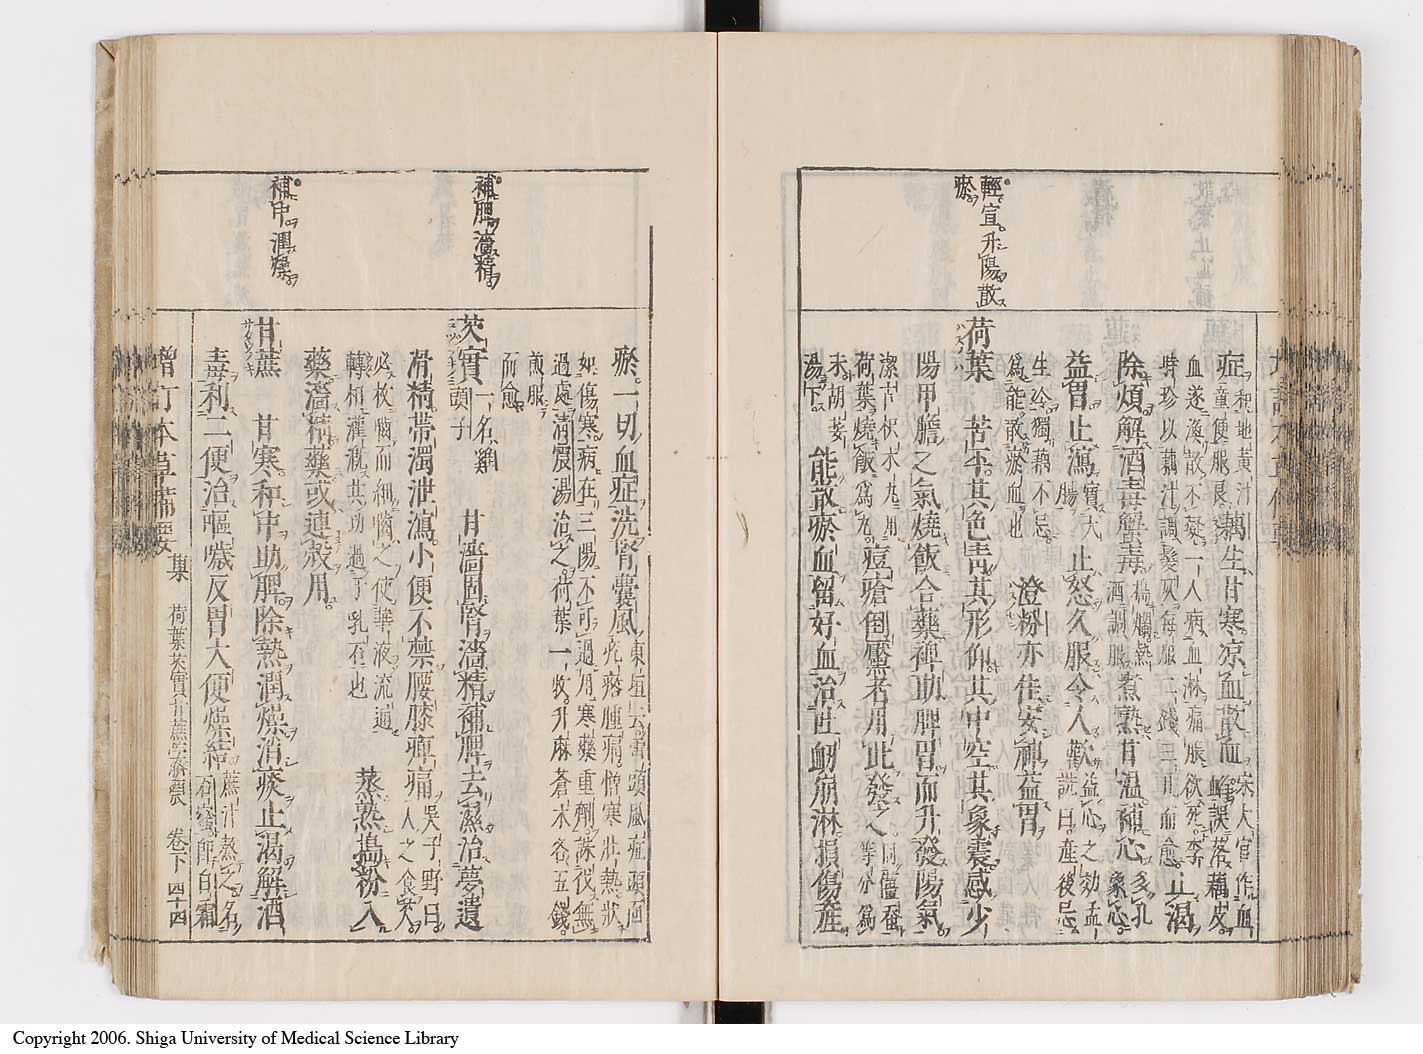 輕宣升陽散
瘀
症和地黃汁童便服良藕生甘寒涼血散血宋大官作血䘓誤落藕皮
血遂渙散不凝一人病血淋痛脹欲死李
時珍以藕汁調髮灰每服二錢三日而愈止渴
除煩解酒毒蟹毒搗爛熱酒調服煮熟甘溫補心多孔象心
益胃止瀉實大腸止怒久服令人歡益心之效孟詵曰產後忌
生冷獨藕不忌為能散瘀血也澄粉亦佳安神益胃
荷葉 苦平其色青其形仰其中空其象震感少
ハスノハ
陽甲膽之氣燒飯合藥裨助脾胃而升發陽氣
潔古枳朮丸用荷葉燒飯為丸痘瘡倒黶者用此發之同殭蠶等分為
末胡荽湯下能散瘀血留好血治吐衄崩淋損傷產
補脾濇精
補中潤燥
瘀一切血症洗腎囊風東垣云雷頭風症頭面疙瘩腫痛憎寒壯熱狀
如傷寒病在三陽不可過用寒藥重劑誅伐無
過處清震湯治之荷葉一枚升麻蒼朮各五錢
煎服
而愈
芡實一名雞頭子 甘濇固腎濇精補脾去濕治夢遺
滑精帶濁泄瀉小便不禁腰膝痺痛吳子野曰人之食芡
必枚嚙而細嚼之使華液流通
轉相灌溉其功過于乳石也蒸熟搗粉入
藥濇精藥或連殼用
甘蔗 甘寒和中助脾除熱潤燥消痰止渴解酒
サタウノキ
毒利二便治嘔噦反胃大便燥結蔗汁熬之名石蜜卽白霜
增訂本草備要 集 荷葉芡實甘蔗荸薺菱 卷下 四十四